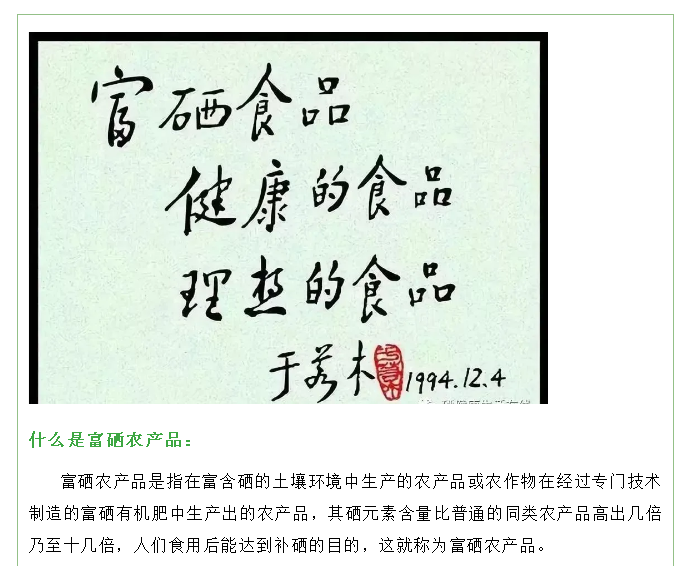 富硒食品
健康的食品
理想的食品
于若木 1994.12.4
什么是富硒农产品：
富硒农产品是指在富含硒的土壤环境中生产的农产品或农作物在经过专门技术
制造的富硒有机肥中生产出的农产品，其硒元素含量比普通的同类农产品高出几倍
乃至十几倍，人们食用后能达到补硒的目的，这就称为富硒农产品。